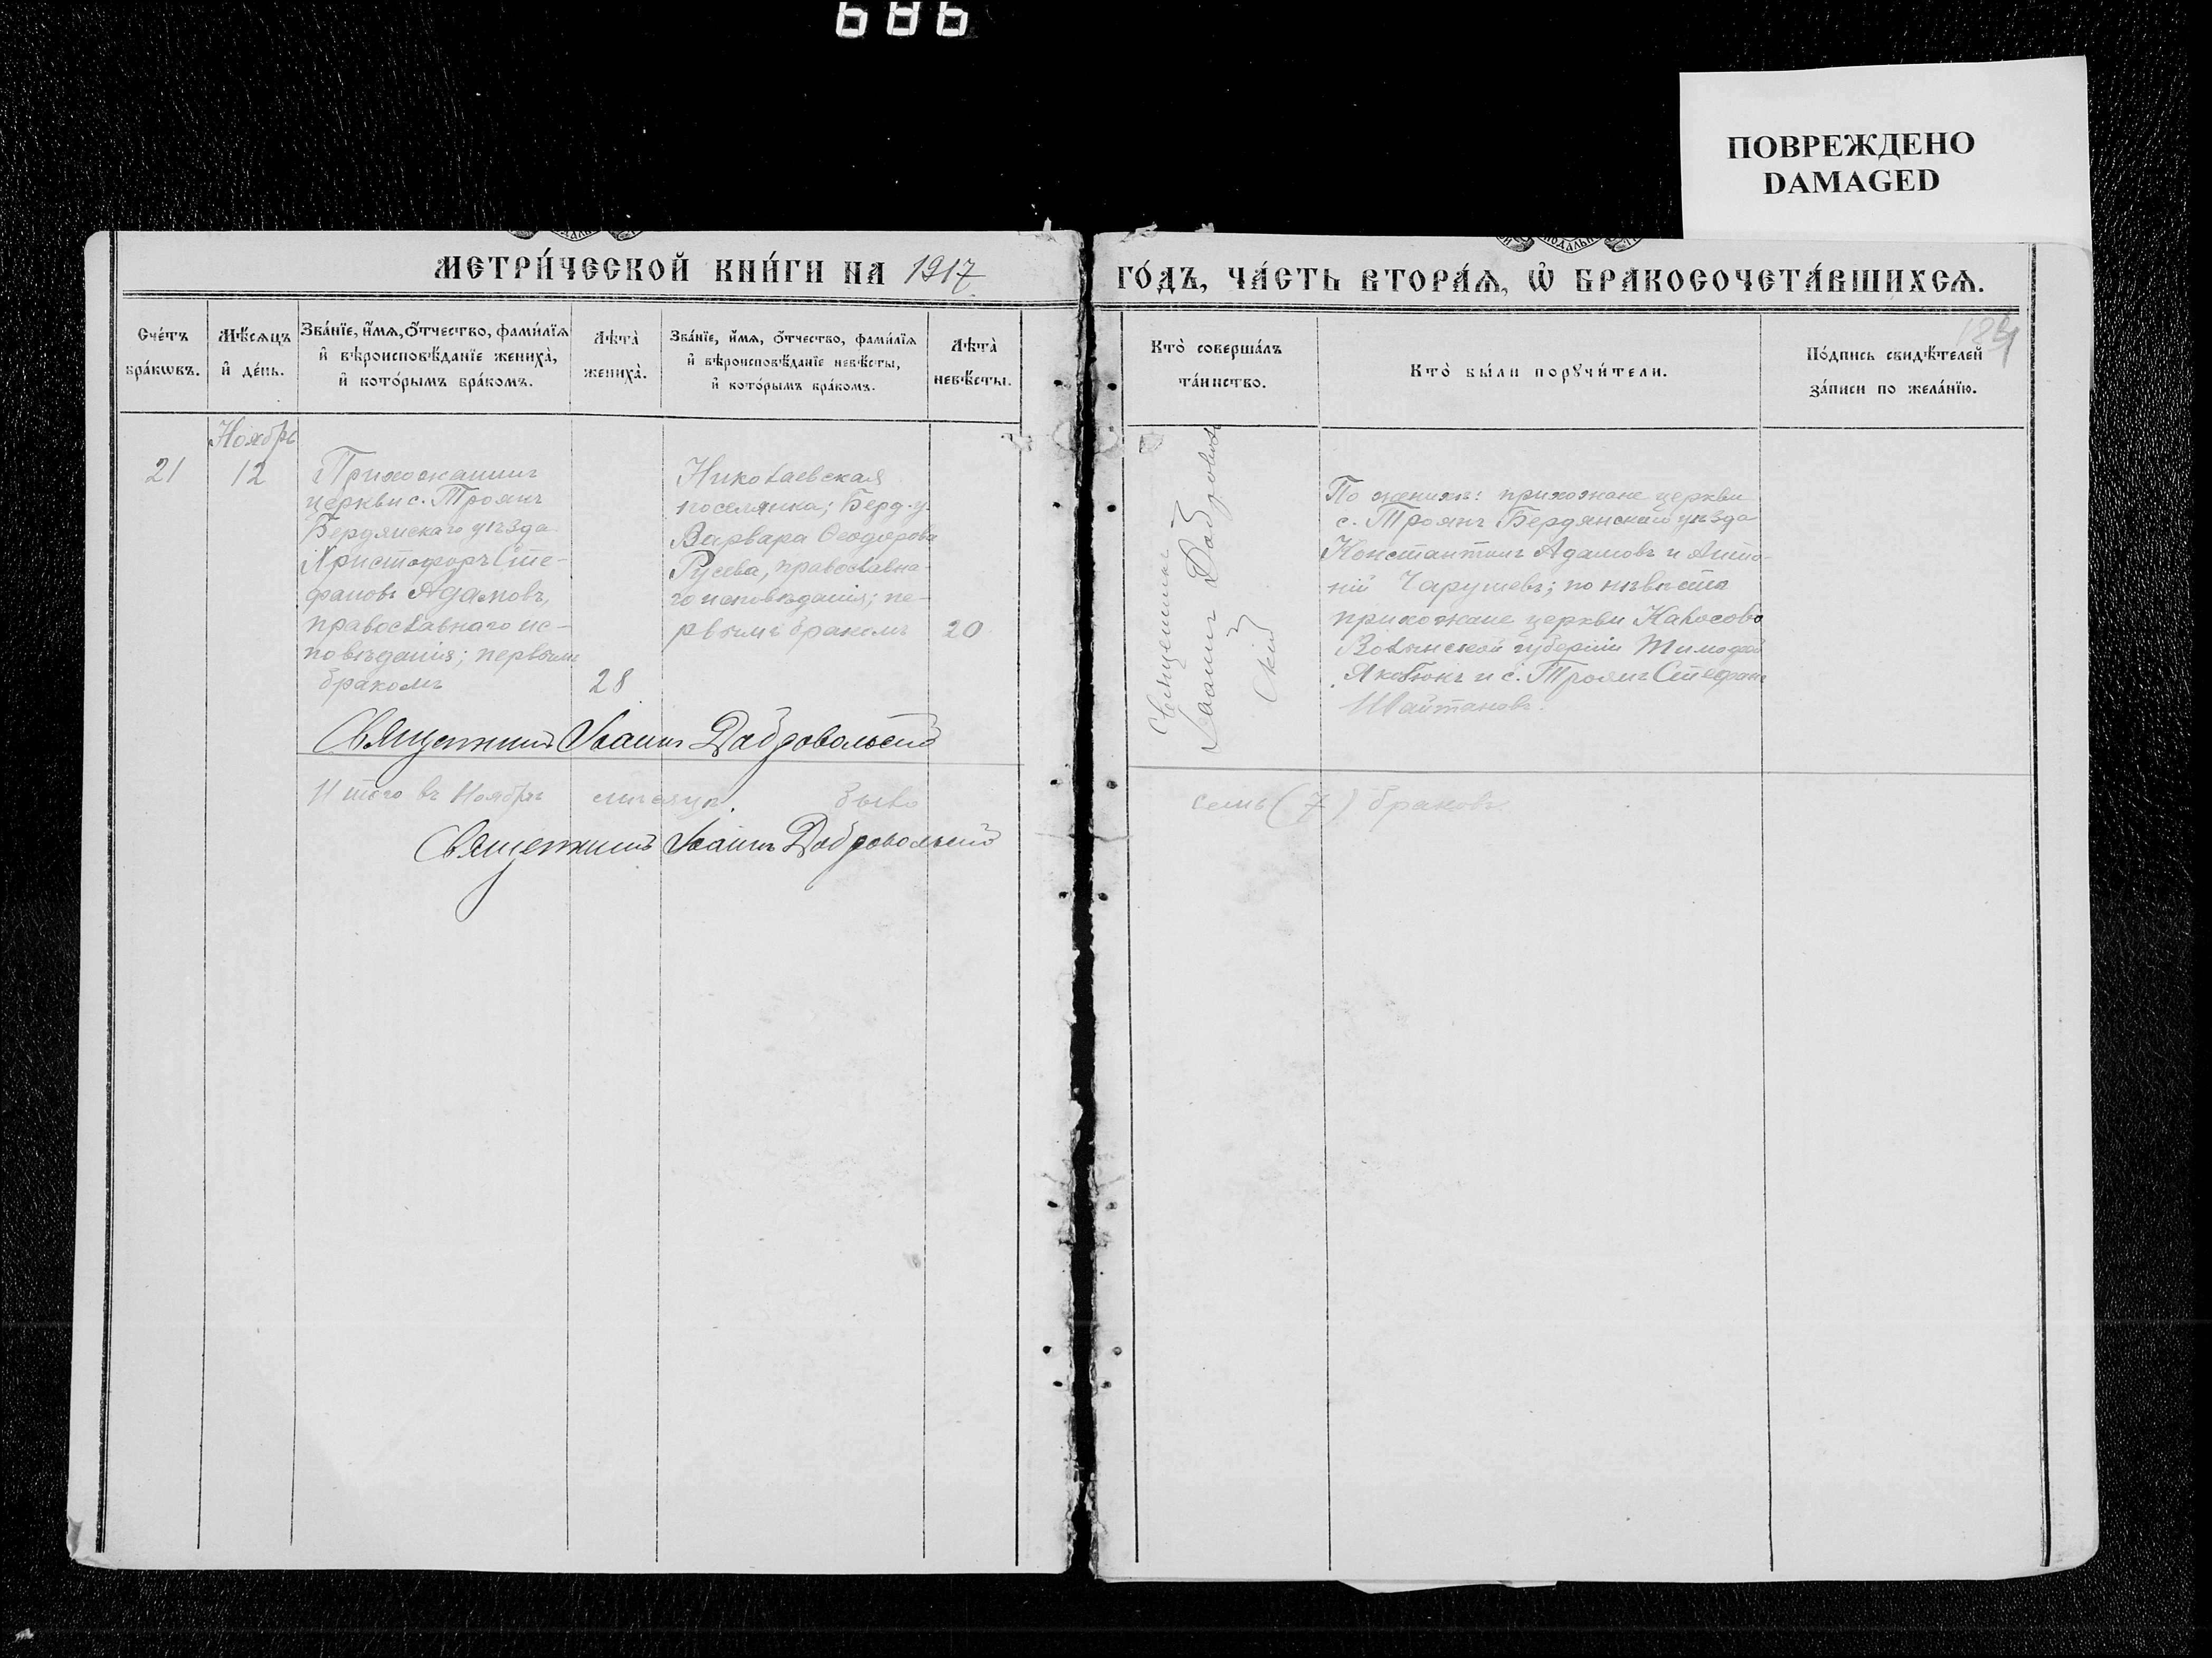 686
ПОВРЕЖДЕНО
DAMAGED
МЕТРИ́ЧЕСКОЙ КНИ́ГИ НА 1917
ГО́ДЪ, ЧА́СТЬ ВТОРА́Ѧ, Ѡ҆ БРАКОСОЧЕТА́ВШИХСѦ.
Сче́тъ
бра́кѡвъ.
Мѣ́сѧцъ
и҆ де́нь.
Зва́нїе, и҆́мѧ, ѻ҆́тчество, фами́лїѧ
и҆ вѣроисповѣ́данїе жениха̀,
и҆ кото́рымъ бра́комъ.
Лѣта̀
жениха̀.
Зва́нїе, и҆́мѧ, ѻ҆́тчество, фами́лїѧ
и҆ вѣроисповѣ́данїе невѣ́сты,
и҆ кото́рымъ бра́комъ.
Лѣта̀
невѣ́сты.
Кто̀ соверша́лъ
та́инство.
Кто̀ бы́ли порꙋчи́тели.
По́дпись свидѣ́телей
за́писи по жела́нїю.
Ноябрь
21
12
Прихожанинъ
церкви с. Троянъ
Бердянскаго уѣзда
Христофоръ Сте-
фановъ Адамовъ,
православнаго ис-
повѣданія; первымъ
бракомъ
28
Николаевская
поселянка; Берд. у.
Варвара Ѳеодорова
Русева, православна-
го исповѣданія; пе-
рвымъ бракомъ
20
Священникъ
Іоаннъ Доброволь
скій
По женихѣ: прихожане церкви
с. Троянъ Бердянскаго уѣзда
Константинъ Адамовъ и Анто-
ній Чарушевъ; по невѣстѣ
прихожане церкви
Волынской губерніи Тимофей
Якобюкъ и с. Троянъ Стефанъ
Шайтановъ.
Священникъ Іоаннъ Добровольскій
Итого въ Ноябрѣ мѣсяцѣ было
семь (7) браковъ.
Священникъ Іоаннъ Добровольскій